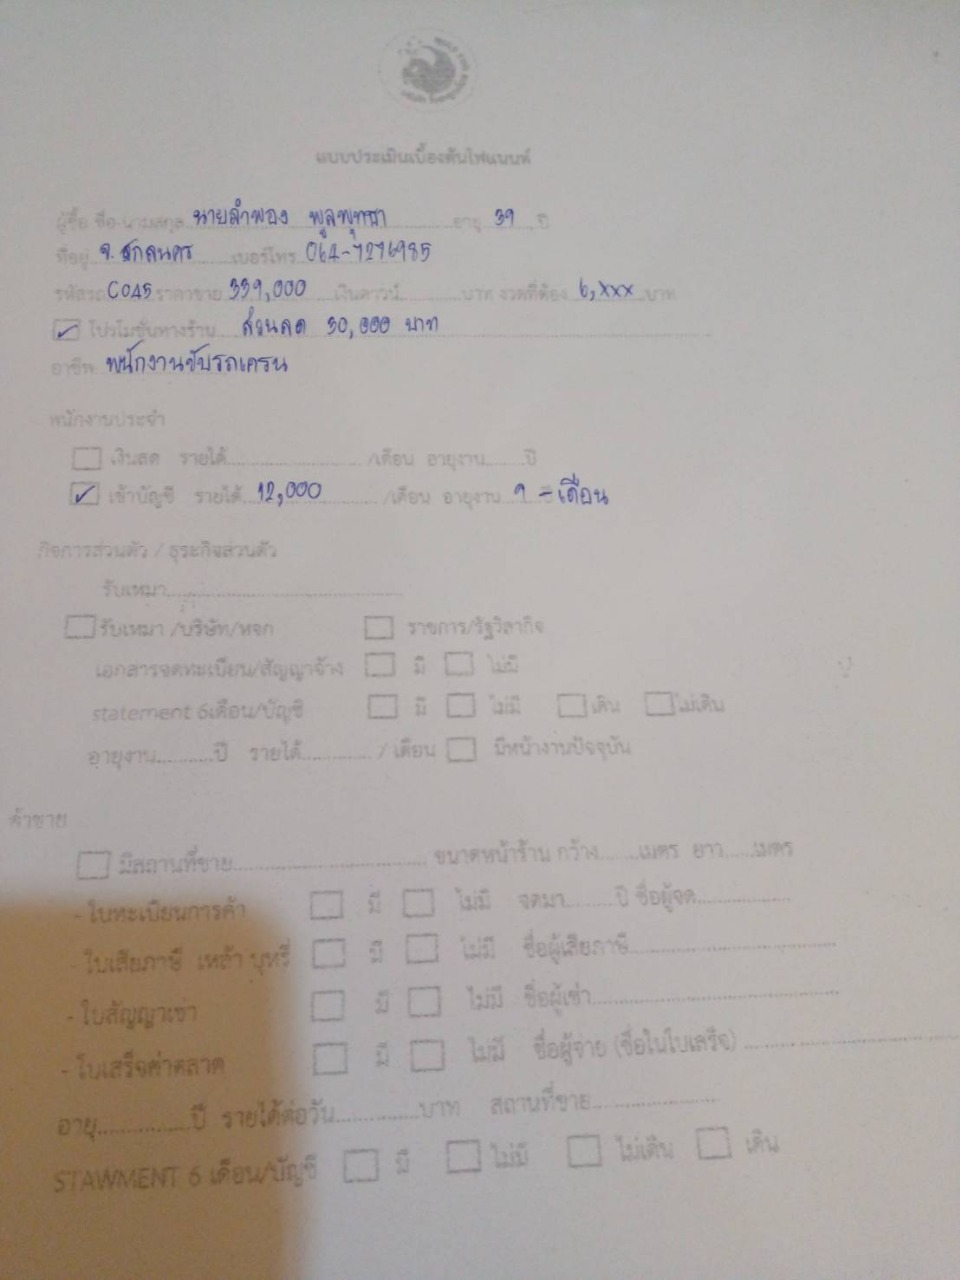 แบบประเมินเบื้องต้นไฟแนนท์
ผู้ซื้อ ชื่อ-นามสกุล นายลำพอง พูลพุทธา อายุ 39 ปี
ที่อยู่ จ.สกลนคร เบอร์โทร 064-7276985
รหัสรถ C045 ราคาขาย 339,000 เงินดาวน์ บาท งวดที่ต้อง 6,xxx บาท
โปรโมชั่นทางร้าน ส่วนลด 30,000 บาท
อาชีพ พนักงานขับรถเครน
พนักงานประจำ
เงินสด รายได้ /เดือน อายุงาน ปี
เข้าบัญชี รายได้ 12,000 /เดือน อายุงาน 9 - เดือน
กิจการส่วนตัว / ธุระกิจส่วนตัว
รับเหมา
รับเหมา /บริษัท/หจก ราชการ/รัฐวิสากิจ
เอกสารจดทะเบียน/สัญญาจ้าง มี ไม่มี
statement 6เดือน/บัญชี มี ไม่มี เดิน ไม่เดิน
อายุงาน ปี รายได้ / เดือน มีหน้างานปัจจุบัน
ค้าขาย
มีสถานที่ขาย ขนาดหน้าร้าน กว้าง เมตร ยาว เมตร
- ใบทะเบียนการค้า มี ไม่มี จดมา ปี ชื่อผู้จด
- ใบเสียภาษี เหล้า บุหรี่ มี ไม่มี ชื่อผู้เสียภาษี
- ใบสัญญาเช่า มี ไม่มี ชื่อผู้เช่า
- ใบเสร็จค่าตลาด มี ไม่มี ชื่อผู้จ่าย (ชื่อในใบเสร็จ)
อายุ ปี รายได้ต่อวัน บาท สถานที่ขาย
STAWMENT 6 เดือน/บัญชี มี ไม่มี ไม่เดิน เดิน